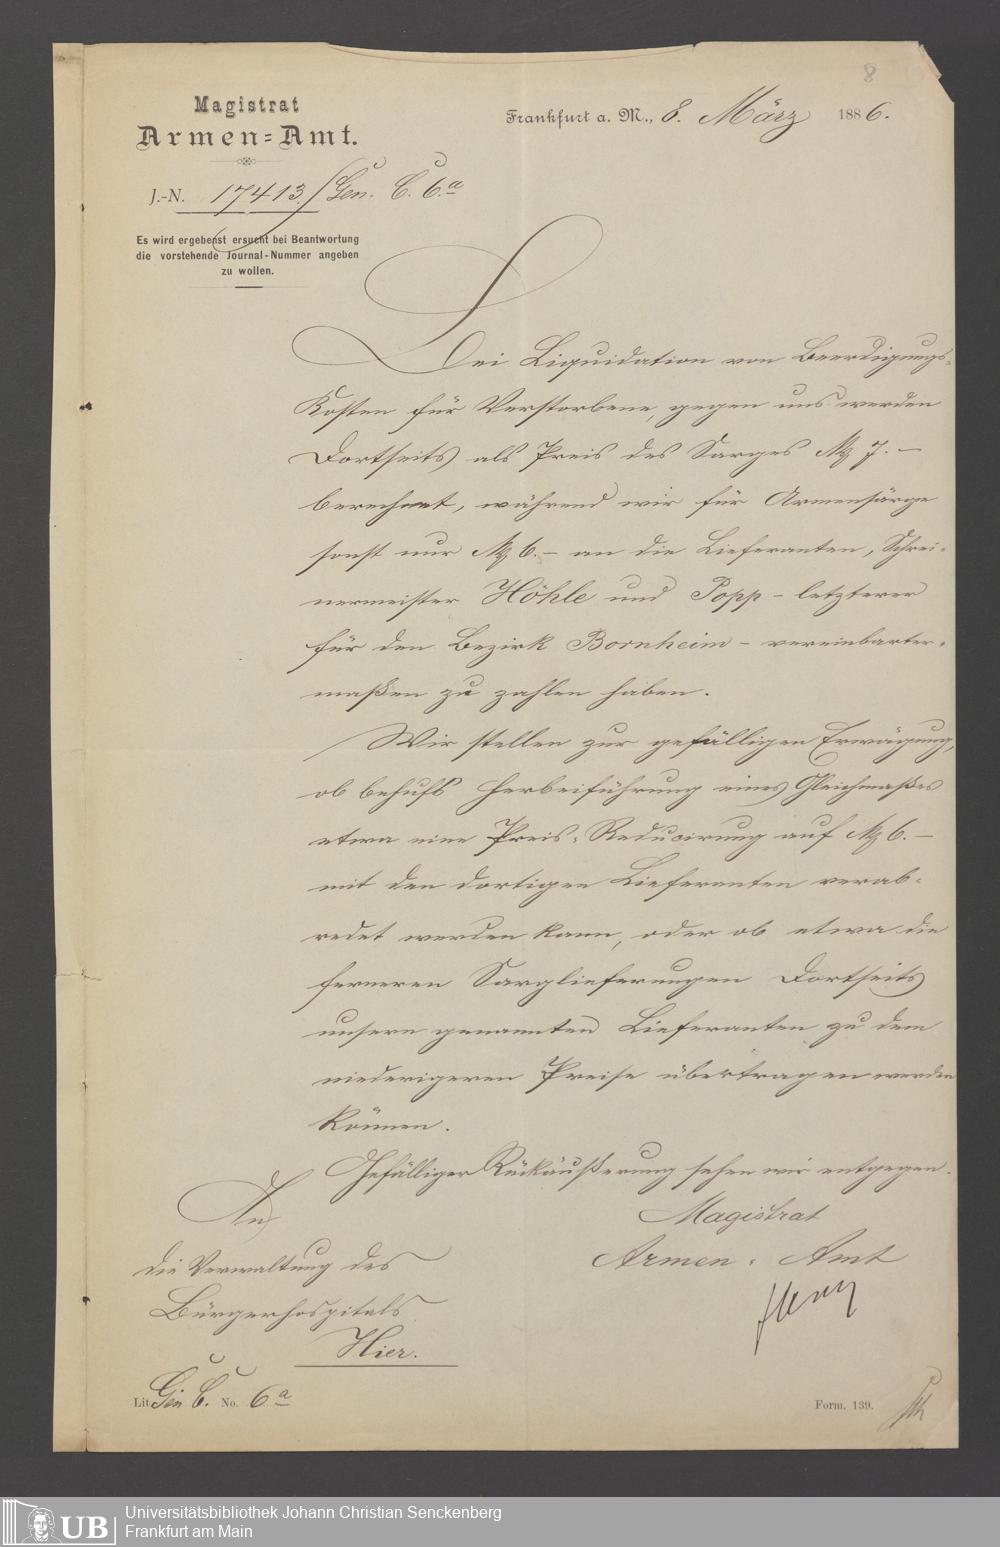 8
Magistrat
Armen=Amt.
Frankfurt a. M., 8. März 1886.
J.-N. 17413./Gen. C. 6.a
Es wird ergebenst ersucht bei Beantwortung
die vorstehende Journal-Nummer angeben
zu wollen.
Bei Liquidation von Beerdigungs-
Kosten für Verstorbene, gegen uns werden
Dortseits als Preis des Sarges M 7. –
berechnet, während wir für Armensärge
sonst nur M 6. – an die Lieferanten, Schrei-
nermeister Höhle und Popp – letzterer
für den Bezirk Bornheim – vereinbarter-
maßen zu zahlen haben.
Wir stellen zur gefälligen Erwägung,
ob behufs Herbeiführung eines Gleichmaßes
etwa eine Preis-Reducirung auf M 6. –
mit den dortigen Lieferanten verab-
redet werden kann, oder ob etwa die
ferneren Sarglieferungen Dortseits
unsern genannten Lieferanten zu dem
niederigeren Preise übertragen werden
können.
Gefälliger Rückäußerung sehen wir entgegen.
Magistrat
Armen-Amt
An
die Verwaltung des
Bürgerhospitals
Hier.
Lit. Gen C. No. 6a
Form. 139.
Universitätsbibliothek Johann Christian Senckenberg
Frankfurt am Main
UB